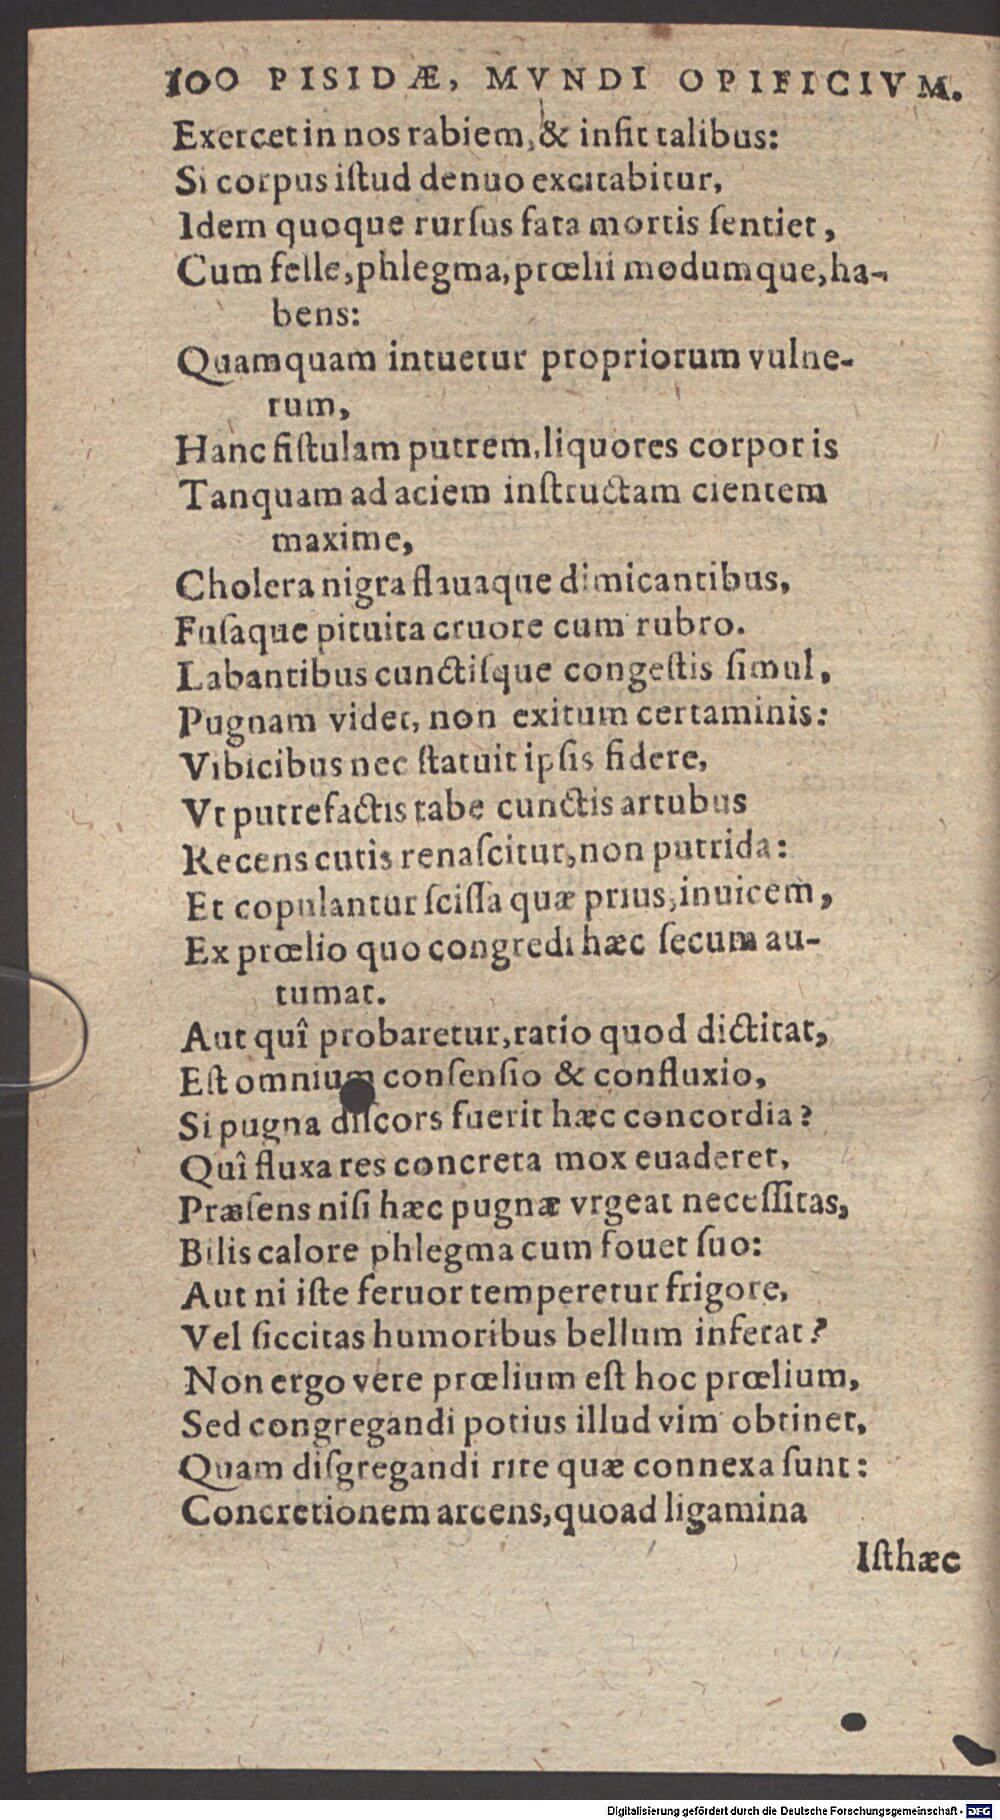 100 PISIDÆ, MVNDI OPIFICIVM.
Exercet in nos rabiem, & inſit talibus:
Si corpus iſtud denuo excitabitur,
Idem quoque rurſus fata mortis ſentiet,
Cum felle, phlegma, prœlii modumque, ha-
bens:
Quamquam intuetur propriorum vulne-
rum,
Hanc fiſtulam putrem, liquores corporis
Tanquam ad aciem inſtructam cientem
maxime,
Cholera nigra flauaque dimicantibus,
Fuſaque pituita cruore cum rubro.
Labantibus cunctiſque congeſtis ſimul,
Pugnam videt, non exitum certaminis:
Vibicibus nec ſtatuit ipſis fidere,
Vt putrefactis tabe cunctis artubus
Recens cutis renaſcitur, non putrida:
Et copulantur ſciſſa quæ prius, inuicem,
Ex prœlio quo congredi hæc ſecum au-
tumat.
Aut quî probaretur, ratio quod dictitat,
Eſt omnium conſenſio & confluxio,
Si pugna diſcors fuerit hæc concordia?
Quî fluxa res concreta mox euaderet,
Præſens niſi hæc pugnæ vrgeat neceſſitas,
Bilis calore phlegma cum fouet ſuo:
Aut ni iſte feruor temperetur frigore,
Vel ſiccitas humoribus bellum inferat?
Non ergo vere prœlium eſt hoc prœlium,
Sed congregandi potius illud vim obtinet,
Quam diſgregandi rite quæ connexa ſunt:
Concretionem arcens, quoad ligamina
Iſthæc
Digitalisierung gefördert durch die Deutsche Forschungsgemeinschaft - DFG